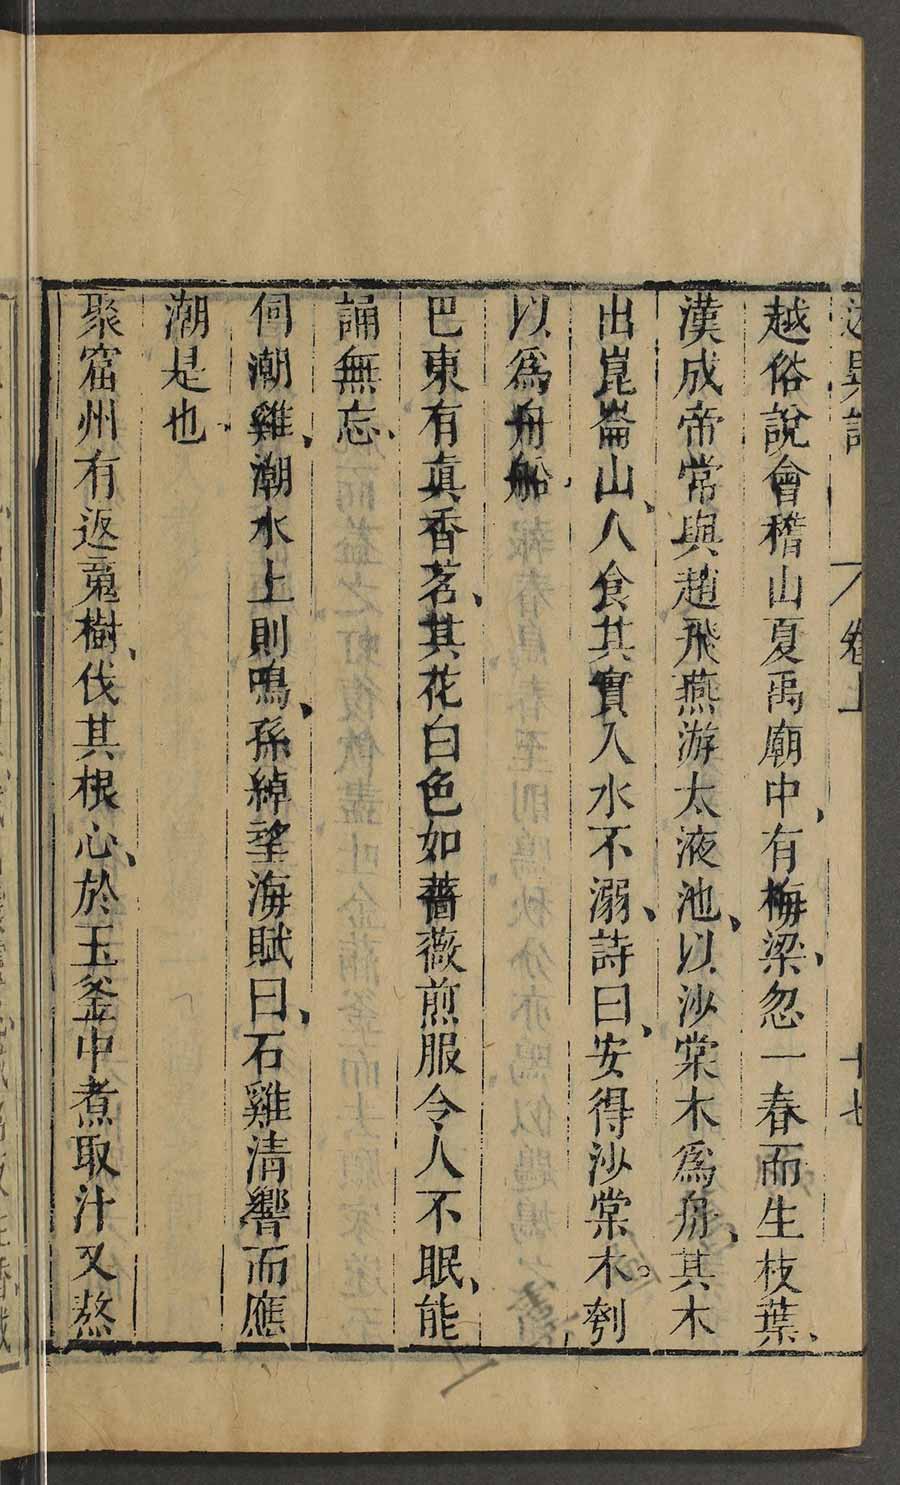 述異記 卷上 十七
越俗說會稽山夏禹廟中、有梅梁、忽一春而生枝葉、
漢成帝常與趙飛燕游太液池、以沙棠木爲舟、其木
出崑崙山、人食其實入水不溺、詩曰、安得沙棠木。刳
以爲舟船、
巴東有真香茗、其花白色如薔薇煎服令人不眠、能
誦無忘、
伺潮雞、潮水上則鳴、孫綽望海賦曰、石雞清響而應
潮是也、
聚窟州有返䰟樹、伐其根心、於玉釜中煮取汁又熬